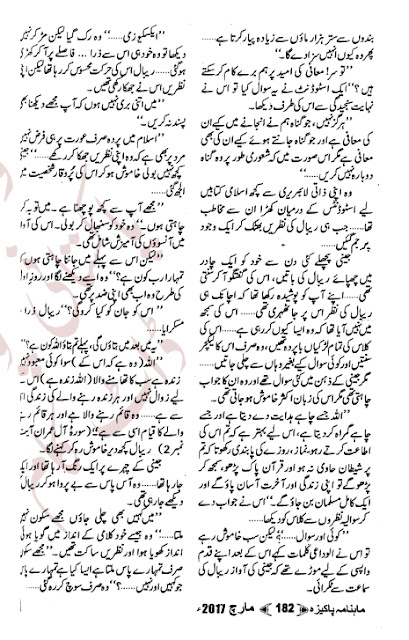 بندوں سے ستر ہزار ماؤں سے زیادہ پیار کرتا ہے.....
پھر وہ کیوں انہیں سزا دے گا۔‘‘
’’تو سر! معافی کی امید پر ہم برے کام کر سکتے
ہیں؟‘‘ ایک اسٹوڈنٹ نے یہ سوال کیا تو اس نے
نہایت سنجیدگی سے اس کی طرف دیکھا۔
’’ہرگز نہیں، جو گناہ ہم نے انجانے میں کیے ان
کی معافی ہے اور جو گناہ جانتے ہوئے کیے ان کی بھی
معافی ہے مگر اس صورت میں کہ شعوری طور پر وہ گناہ
دوبارہ نہ کریں.....‘‘
وہ اپنی ذاتی لائبریری سے کچھ اسلامی کتابیں
لیے اسٹوڈنٹس کے درمیان کھڑا ان سے مخاطب
تھا..... جب ہی ریبال کی نظریں بھٹک کر ایک وجود
پر جم گئیں.....
جینی پچھلے کئی دن سے خود کو ایک چادر
میں چھپائے ریبال کی باتیں، اس کی گفتگو آ کر سنتی
تھی..... اپنے آپ کو پوشیدہ رکھا تھا کہ اچانک ہی
ریبال کی نظر اس پر جا ٹھہری تھی..... اس کی سمجھ
میں نہیں آیا تھا کہ وہ ایسا کیوں کر رہی ہے..... اس کی
کلاس کی تمام لڑکیاں با پردہ تھیں، وہ صرف اس کا لیکچر
سنتیں اور کوئی سوال کیے بغیر وہاں سے چلی جاتیں.....
مگر جینی کے ذہن میں کئی سوال تھے اور وہ ان کا جواب
چاہتی تھی مگر اس کی زبان اکثر خاموش ہو جاتی تھی۔
’’اللہ جسے چاہے ہدایت دے دیتا ہے اور جسے
چاہے گمراہ کر دیتا ہے، اس لیے بہتر ہے کہ تم اس کی
اطاعت کرتے رہو، نماز، روزے کی پابندی رکھو تاکہ تم
پر شیطان حاوی نہ ہو اور قرآن پاک پڑھو، سمجھ کر
پڑھو گے تو اپنی زندگی اور آخرت آسان پاؤ گے اور
ایک کامل مسلمان بن جاؤ گے۔‘‘ اس نے جواب دے
کر سوالیہ نظروں سے کلاس کو دیکھا۔
’’کوئی اور سوال.....‘‘ لیکن سب خاموش رہے
تو اس نے الوداعی کلمات کہے اس کے بعد اپنے قدم
واپسی کے لیے موڑے تھے کہ جینی کی آواز ریبال کی
سماعت سے ٹکرائی۔
’’ایکسکیوز می.....‘‘ وہ رک گیا لیکن مڑ کر نہیں
دیکھا تو وہ خود ہی اس سے ذرا ..... فاصلے پر آ کر کھڑی
ہو گئی..... ریبال اس کی حرکت محسوس کر رہا تھا لیکن اپنی
نظریں اس نے جھکا رکھی تھیں۔
’’میں اتنی بری نہیں ہوں کہ آپ مجھے دیکھنا بھی
پسند نہ کریں۔‘‘
’’اسلام میں پردہ صرف عورت پر ہی فرض نہیں
مرد پر بھی ہے کہ وہ اپنی نظریں جھکا کر رکھے.....‘‘ وہ
کچھ نہیں بولی خاموش ہو کر اس کی پُر وقار شخصیت میں
الجھ گئی۔
’’مجھے آپ سے کچھ پوچھنا ہے ۔ میں توبہ کرنا
چاہتی ہوں۔‘‘ وہ خود کو سنبھال کر بولی۔ اس کی آواز
میں آنسوؤں کی آمیزش شامل تھی۔
’’لیکن اس سے پہلے میں جاننا چاہتی ہوں کہ
تمہارا رب کون ہے؟‘‘ وہ اسے دیکھنے لگا اور روزِ اول
کی طرح وہ اب بھی اپنی ضد پر تھی۔
’’اس کو جان کر کیا کرو گی؟‘‘ ریبال
مسکرایا.....
’’یہ میں بعد میں بتاؤں گی، پہلے تم بتاؤ اللہ کون ہے؟‘‘
’’اللہ (وہ ہے کہ اس کے) سوا کوئی معبود نہیں
زندہ ہے سب کا تھامنے والا (اللہ زندہ ہے) اس کے
لیے زوال نہیں اور ہر زندہ رہنے والے کی زندگی اس
سے ہے..... وہ قائم رہنے والا ہے اور ہر قائم رہنے
والے کا قیام اسی سے ہے۔‘‘ (سورۃ آل عمران آیت
نمبر 2) ریبال کچھ دیر خاموش رہ کر کہنے لگا۔
جینی کے چہرے پر ایک رنگ آ رہا تھا اور ایک
جا رہا تھا..... وہ آس پاس سے بے پروا ہو کر ریبال کو
دیکھے جا رہی تھی۔
’’میں کہیں بھی چلی جاؤں مجھے سکون نہیں
ملتا.....‘‘ وہ جیسے خود کلامی کے انداز میں گویا ہوئی
انداز کھویا ہوا اور نظریں ساکت تھیں۔ ’’مجھے سکون
صرف تمہارے پاس ملتا ہے ایسا کیا ہے تم میں
جو کہیں اور نہیں.....؟‘‘ وہ صرف سوچ کر رہ گئی.....
ماہنامہ پاکیزہ 182 مارچ 2017ء